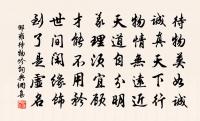 待物莫如誠
誠真天下行
物情無遠近
天道自分明
義理須宜顧
才能不用矜
世間閑緣飾
到了是虛名
邵雍待物吟詞典網集